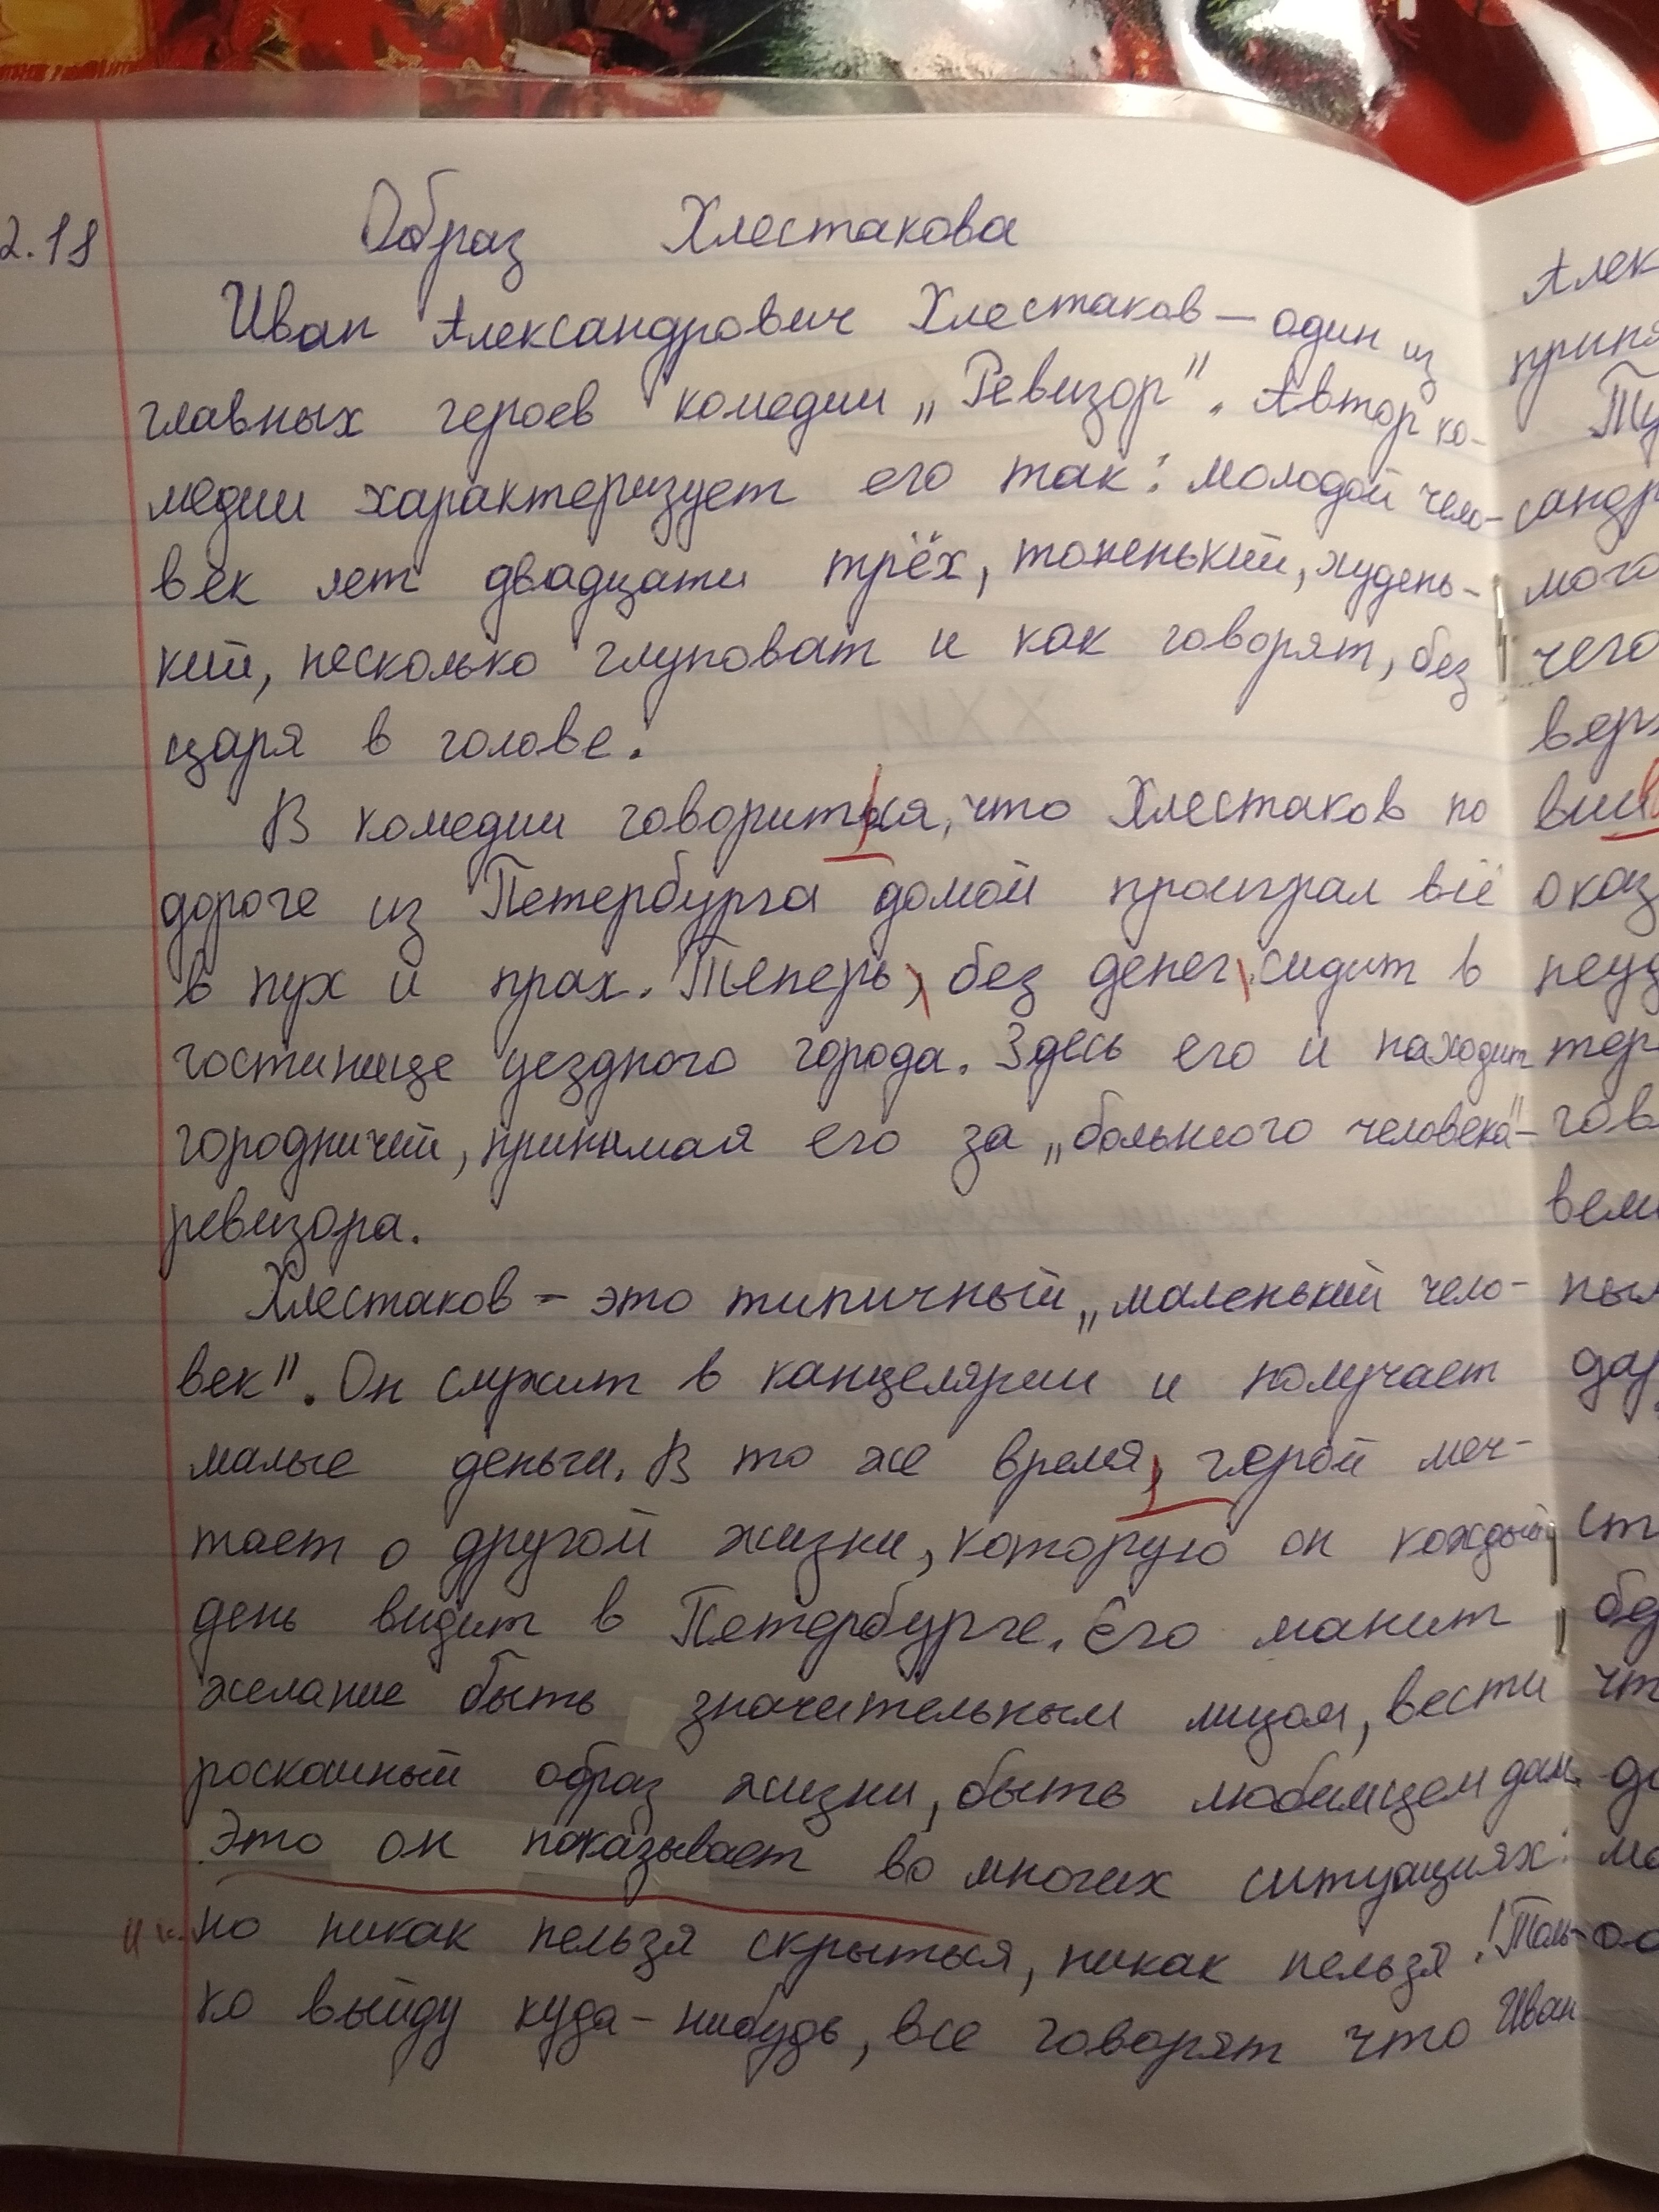 2.18
Образ Хлестакова
Иван Александрович Хлестаков – один из
главных героев комедии „Ревизор". Автор ко-
медии характеризует его так: молодой чело-
век лет двадцати трёх, тоненький, худень-
кий, несколько глуповат и как говорят, без
царя в голове.
В комедии говориться, что Хлестаков по
дороге из Петербурга домой проиграл всё
в пух и прах. Теперь, без денег, сидит в
гостинице уездного города. Здесь его и находит
городничий, принимая его за „большого человека"-
ревизора.
Хлестаков – это типичный „маленький чело-
век". Он служит в канцелярии и получает
малые деньги. В то же время, герой меч-
тает о другой жизни, которую он каждый
день видит в Петербурге. Его манит
желание быть значительным лицом, вести
роскошный образ жизни, быть любимцем дам.
Это он показывает во многих ситуациях:
но никак нельзя скрыться, никак нельзя! Толь-
ко выйду куда-нибудь, все говорят что Иван
Алек
приня
Ту
сандр
мого
чего
верх
оказ
неуд
тор
гов
вели
пы
дар
ст
бе
чт